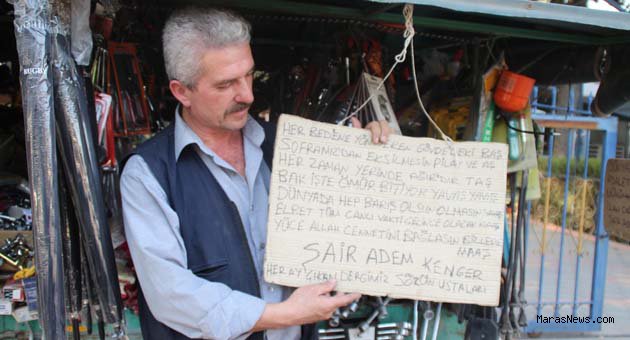 HER BEDENE YÜK GÖVDE BAŞ
SOFRANIZDAN EKSİLMESİN PİLAV VE AŞ
HER ZAMAN YERİNDE AĞIRDIR TAŞ
BAK İŞTE ÖMÜR BİTİYOR YAVAŞ YAVAŞ
DÜNYADA HEP BARIŞ OLSUN OLMASIN
ELBET TÜM CANLI VAKTİ GELİNCE OLACAK
YÜCE ALLAH CENNETİNİ BAĞLASIN BİZLERE
MAAŞ
ŞAİR ADEM KENGER
HER AY ÇIKAN DERGİMİZ SÖZÜN USTALARI
MarasNews.com